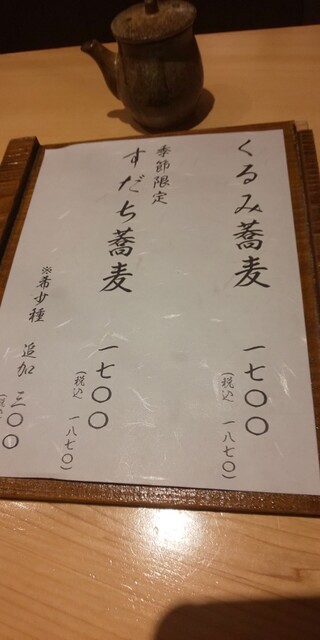 くるみ蕎麦 一七〇〇
(税込 一八七〇)
季節限定
すだち蕎麦 一七〇〇
(税込 一八七〇)
※希少種 追加 三〇〇